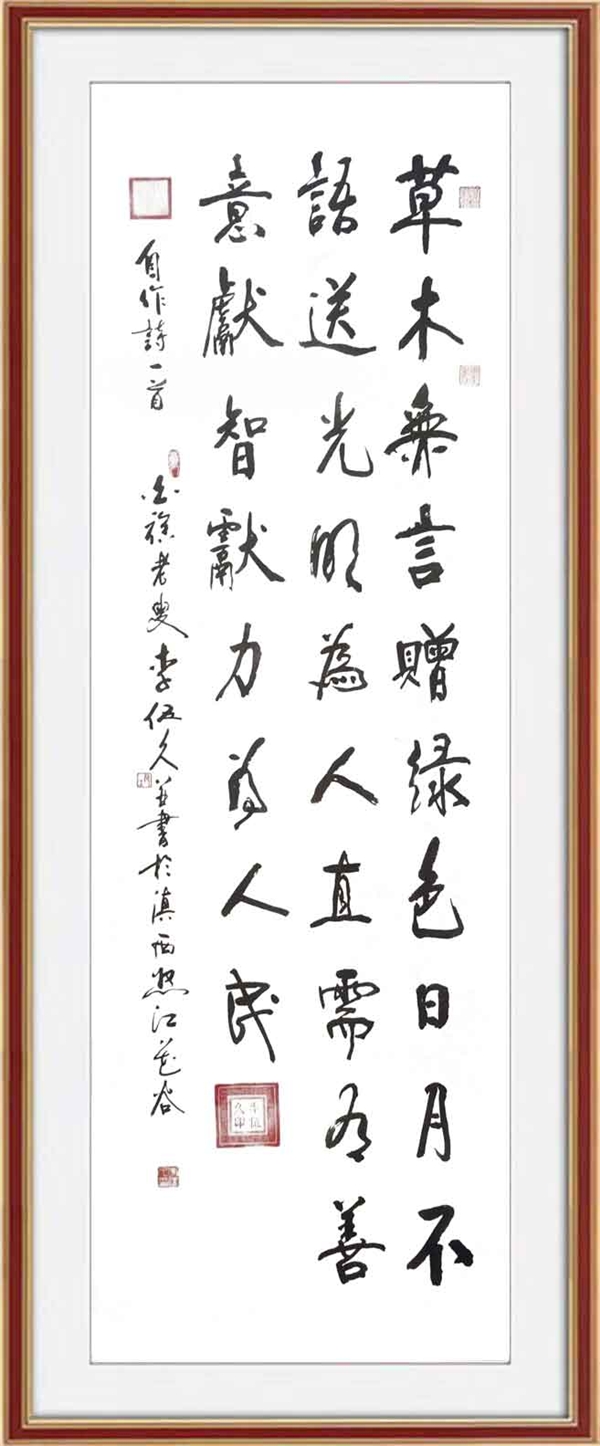 草木無言贈绿色日月不
語送光明為人直需有善
意獻智獻力為人民
自作詩一首
老叟李伍久并書於滇西怒江花谷
李伍久印